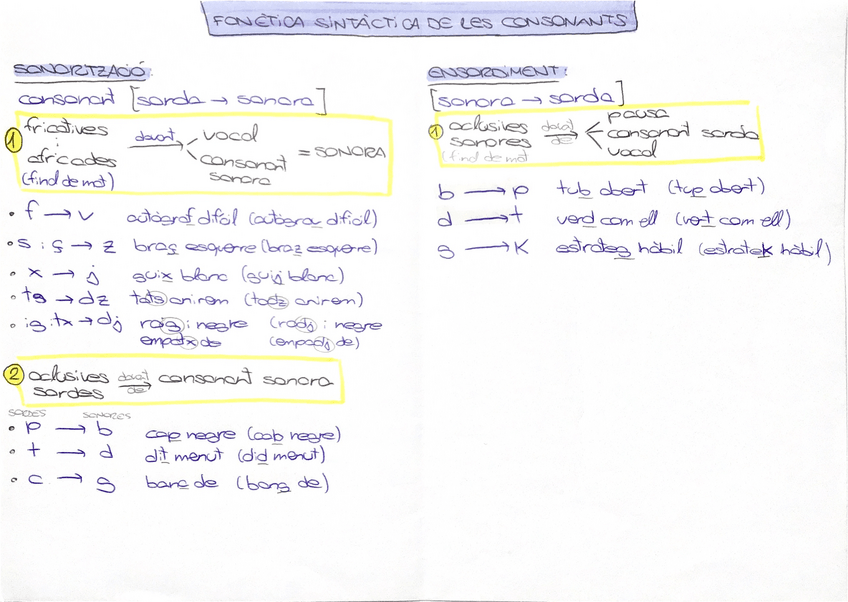 FONÈTICA SINTÀCTICA DE LES CONSONANTS
SONORITZACIÓ:
consonant [sorda → sonora]
1 fricatives i africades (final de mot) davant → vocal
consonant sonora = SONORA
• f → v autògraf difícil (autògrav difícil)
• s i ç → z braç esquerre (braz esquerre)
• x → j guix blanc (guij blanc)
• ts → dz tots anirem (todz anirem)
• ig, tx → dj roig i negre (rodj i negre
empatx de (empadj de)
2 oclusives sordes davant de → consonant sonora
SORDES SONORES
• p → b cap negre (cab negre)
• t → d dit menut (did menut)
• c → g banc de (bang de)
ENSORDIMENT:
[sonora → sorda]
1 oclusives sonores (final de mot davant de → pausa
consonant sorda
vocal
b → p tub obert (tup obert)
d → t verd com ell (vert com ell)
g → K estrateg hàbil (estratek hàbil)